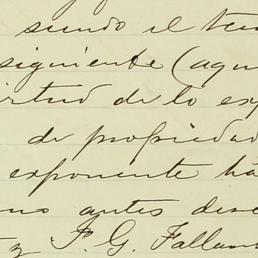 siendo el ten
siguiente (aqu
irtud de lo ex
de propiedad
exponente ha
antes desc
y F. G. Fallam